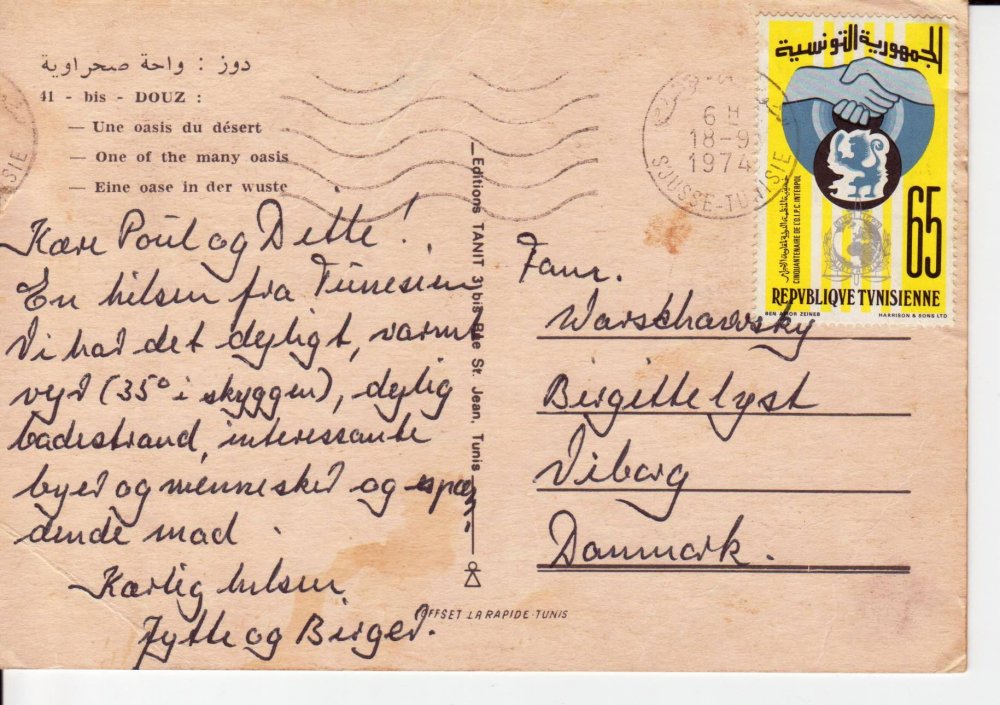 دوز : واحة صحراوية
41 - bis - DOUZ :
— Une oasis du désert
— One of the many oasis
— Eine oase in der wuste
Kære Poul og Dette!
En hilsen fra Tunesien
Vi har det dejligt, varmt
vejr (35° i skyggen), dejlig
badestrand, interessante
byer og mennesker og spæn-
dende mad.
Kærlig hilsen
Jytte og Birger.
Editions TANIT 31 bis Rue St. Jean. Tunis
OFFSET LA RAPIDE-TUNIS
6 H
18-9
1974
SOUSSE-TUNISIE
الجمهورية التونسية
CINQUANTENAIRE DE L'O.I.P.C INTERPOL
65
REPVBLIQVE TVNISIENNE
BEN AMOR ZEINEB
HARRISON & SONS LTD
Fam.
Warschawsky
Birgittelyst
Viborg
Danmark.